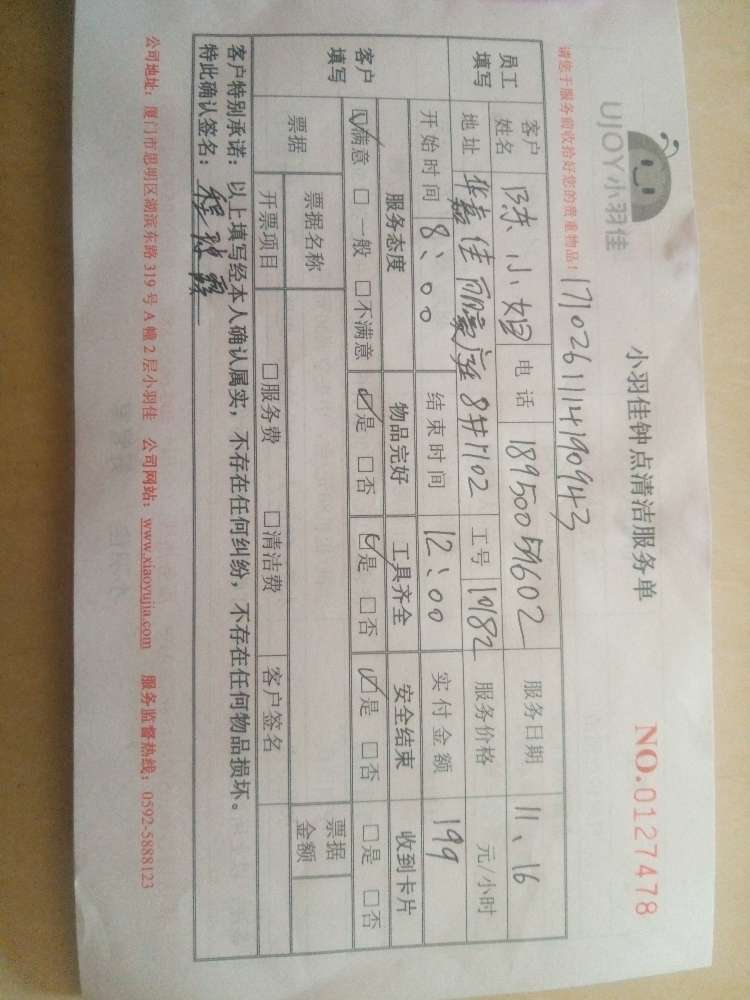 UJOY小羽佳
小羽佳钟点清洁服务单
NO.0127478
请您于服务前收拾好您的贵重物品!
1710261114190943
员工填写 客户姓名 陈小姐 电话 18950059602 服务日期 11、16
地址 华嘉佳丽豪庭 8#1102 工号 10182 服务价格 元/小时
开始时间 8:00 结束时间 12:00 实付金额 199
客户填写 服务态度 物品完好 工具齐全 安全结束 收到卡片
☑满意 □一般 □不满意 ☑是 □否 ☑是 □否 ☑是 □否 □是 □否
票据 票据名称 票据金额
开票项目 □服务费 □清洁费 客户签名
客户特别承诺:以上填写经本人确认属实,不存在任何纠纷,不存在任何物品损坏。
特此确认签名:
公司地址:厦门市思明区湖滨东路 319 号 A 幢 2 层小羽佳 公司网站:www.xiaoyujia.com 服务监督热线:0592-5888123